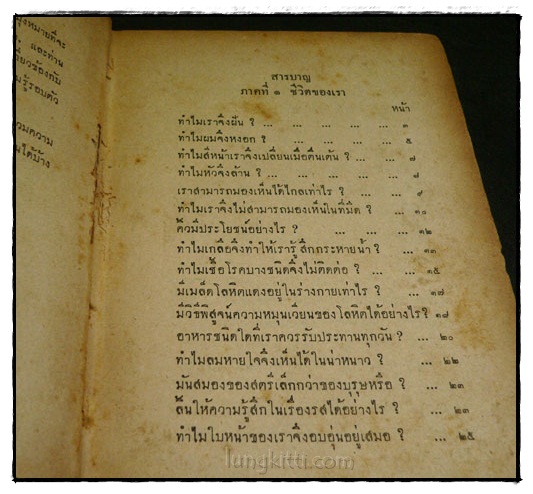 และท่าน
สารบาญ
ภาคที่ ๑ ชีวิตของเรา
หน้า
ทำไมเราจึงฝัน ? ... ... ... ... ... ๓
ทำไมผมจึงหงอก ? ... ... ... ... ๕
ทำไมสีหน้าเราจึงเปลี่ยนเมื่อตื่นเต้น ? ... ... ๗
ทำไมหัวจึงล้าน ? ... ... ... ... ๗
เราสามารถมองเห็นได้ไกลเท่าไร ? ... ... ๙
ทำไมเราจึงไม่สามารถมองเห็นในที่มืด ? ... ๑๐
คิ้วมีประโยชน์อย่างไร ? ... ... ... ๑๒
ทำไมเกลือจึงทำให้เรารู้สึกกระหายน้ำ ? ... ๑๓
ทำไมเชื้อโรคบางชนิดจึงไม่ติดต่อ ? ... ... ๑๕
มีเมล็ดโลหิตแดงอยู่ในร่างกายเท่าไร ? ... ๑๗
มีวิธีพิสูจน์ความหมุนเวียนของโลหิตได้อย่างไร? ๑๘
อาหารชนิดใดที่เราควรรับประทานทุกวัน ? ... ๒๐
ทำไมลมหายใจจึงเห็นได้ในน่าหนาว ? ... ๒๒
มันสมองของสตรีเล็กกว่าของบุรุษหรือ ? ... ๒๓
ลิ้นให้ความรู้สึกในเรื่องรสได้อย่างไร ? ... ๒๓
ทำไมใบหน้าของเราจึงอบอุ่นอยู่เสมอ ? ... ๒๕
lungkitti.com